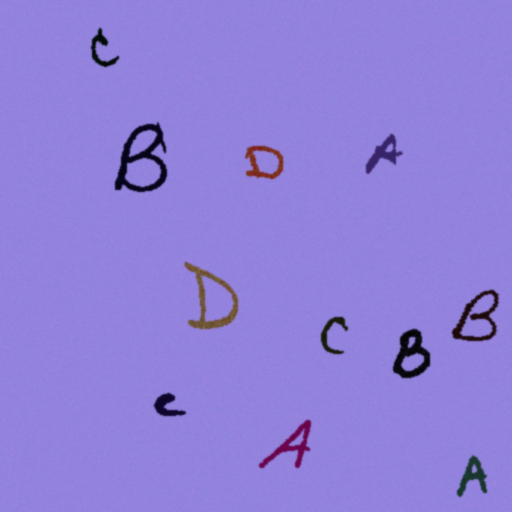 C
B D A
D
C B B
C
A
A